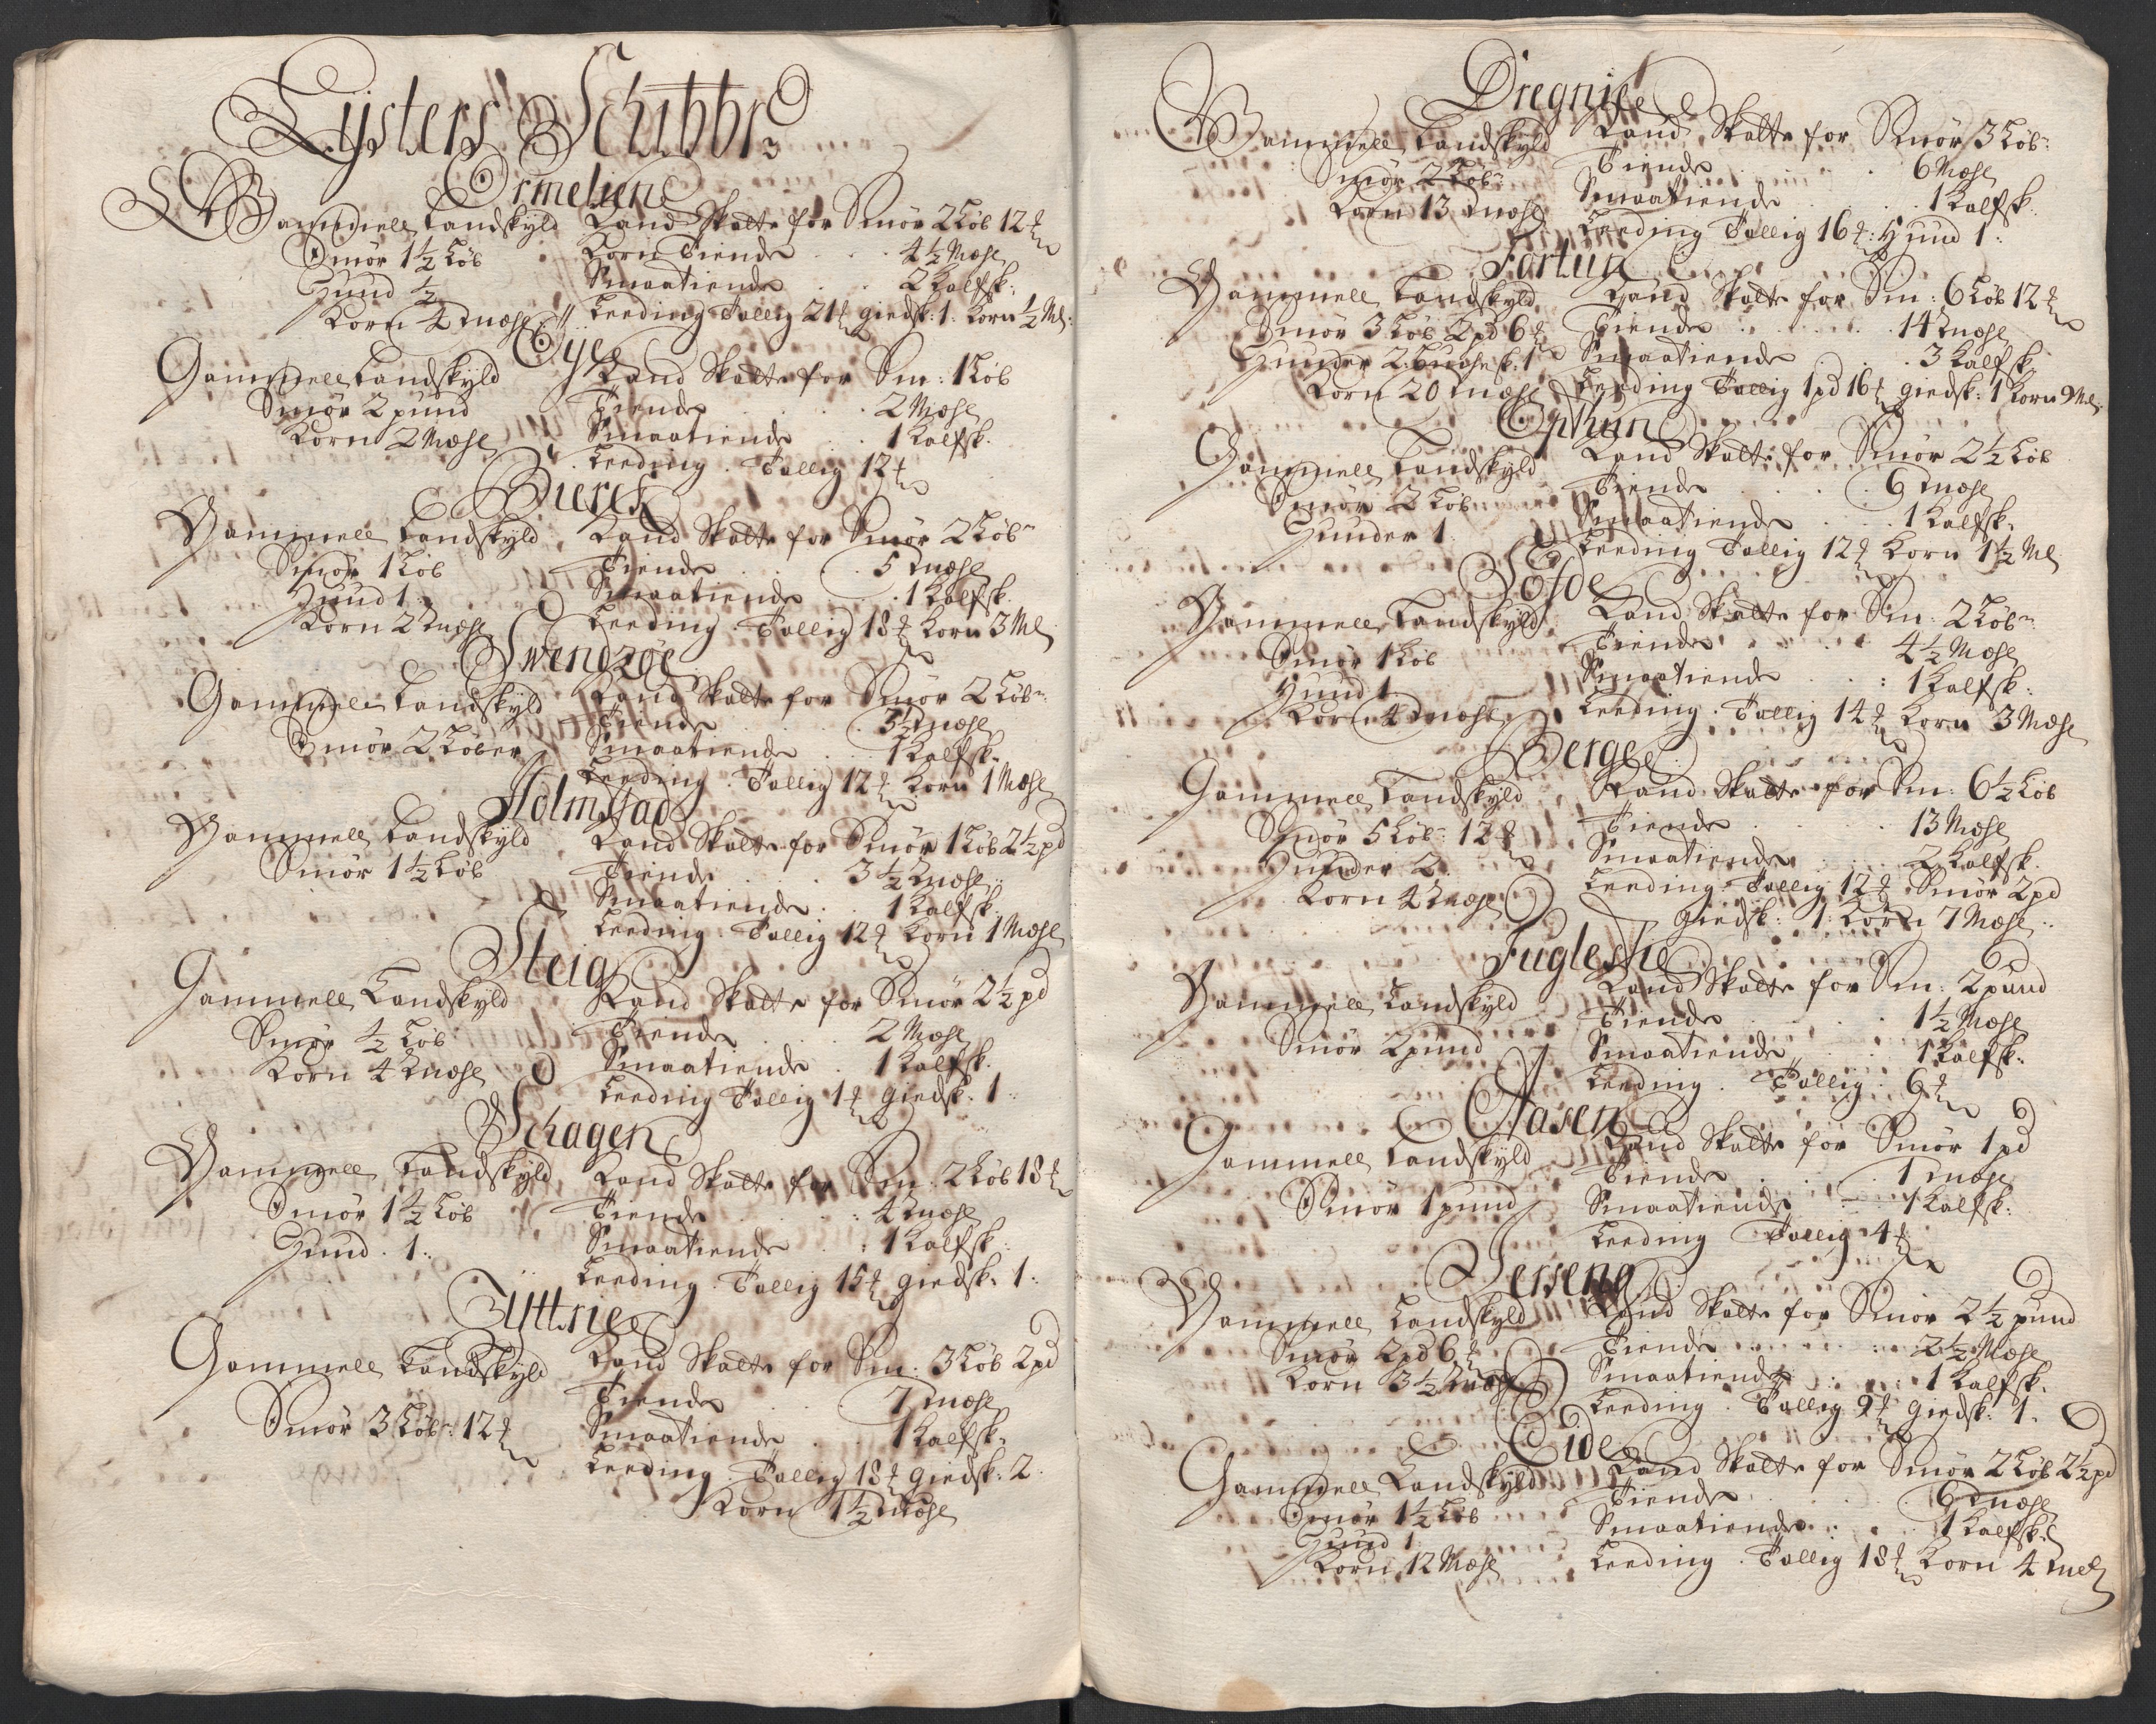 Lÿsters Schibbr
Ormelien
Gammell Landskyld
Smör 1½ Löb
Huud ½
Korn 4 Mæhl
Land Skatt for Smör 2 Löb 12
Korn Tiende . . . 4½ Mæhl
Smaatiende . . 2 Kalfsk:
Leeding Tallig 21 giedsk: 1. Korn ½ Ml:
Øye
Gammell Landskyld
Smör 2 pund
Korn 2 Mæhl
Land Skatt for Sm: 1 Löb
Tiende . . . 2 Mæhl
Smaatiende . . 1 Kalfsk.
Leeding . Tallig 12
Bierch
Gammell Landskyld
Smör 1 Löb
Huud 1.
Korn 2 Mæhl
Land Skatt for Smör 2 Löb
Tiende . . . 5 Mæhl
Smaatiende . . 1 Kalfsk.
Leeding . Tallig 18 Korn 3 Ml
Swendzöe
Gammell Landskyld
Smör 2 Löber
Land Skatt for Smör 2 Löb
Tiende . . . 3½ Mæhl
Smaatiende . . 1 Kalfsk.
Leeding . Tallig 12 Korn 1 Mæhl
Holmstad
Gammell Landskyld
Smör 1½ Löb
Land Skatt for Smör 1 Löb 2½ pd
Tiende . . . 3½ Mæhl
Smaatiende . . 1 Kalfsk.
Leeding . Tallig 12 Korn 1 Mæhl
Steig
Gammell Landskyld
Smör ½ Löb
Korn 4 Mæhl
Land Skatt for Smör 2½ pd
Tiende . . . 2 Mæhl
Smaatiende . 1 Kalfsk.
Leeding Tallig 1 giedsk. 1.
Schagen
Gammell Landskyld
Smör 1½ Löb
Huud . 1.
Land Skatt for Sm. 2 Löb 18
Tiende . . . 4 Mæhl
Smaatiende . . 1 Kalfsk
Leeding . Tallig 15 giedsk. 1.
Yttrie
Gammell Landskyld
Smör 3 Löb: 12
Land Skatt for Sm. 3 Löb 2 pd
Tiende . . . 7 Mæhl
Smaatiende . . 1 Kalfsk.
Leeding . Tallig 18 giedsk: 2.
Korn 1½ Mæhl
Dregnie
Gammell Landskyld
Smör 2 Löb
Korn 13 Mæhl
Land Skatt for Smör 3 Löb
Tiende . . . 6 Mæhl
Smaatiende . . 1 Kalfsk.
Leeding Tallig 16: Huud 1.
Fortun
Gammell Landskyld
Smör 3 Löb 2 pd 6
Huuder 2. 1
Korn 20 Mæhl
Land Skatt for Sm: 6 Löb 12
Tiende . . . 14 Mæhl
Smaatiende . . 3 Kalfsk
Leeding Tallig 1 pd 16 giedsk: 1 Korn 9 Ml.
Optun
Gammell Landskyld
Smör 2 Löb
Huuder 1.
Land Skatt for Smör 2½ Löb
Tiende . . . 6 Mæhl
Smaatiende . . 1 Kalfsk.
Leeding Tallig 12 Korn 1½ Ml
Söfde
Gammell Landskyld
Smör 1 Löb
Huud 1.
Korn 4 Mæhl
Land Skatt for Sm. 2 Löb
Tiende . . . 4½ Mæhl
Smaatiende . . 1 Kalfsk.
Leeding . Tallig 14 Korn 3 Mæhl
Berge
Gammell Landskyld
Smör 5 Löb: 12
Huuder 2.
Korn 4 Mæhl
Land Skatt for Sm. 6½ Löb
Tiende . . . 13 Mæhl
Smaatiende . . 2 Kalfsk.
Leeding . Tallig 12 Smör 2 pd
giedsk: 1. Korn 7 Mæhl.
Fugleskie
Gammell Landskyld
Smör 2 pund
Land Skatt for Sm. 2 pund
Tiende . . . 1½ Mæhl
Smaatiende . . 1 Kalfsk.
Leeding . Tallig . 6
Aasen
Gammell Landskyld
Smör 1 pund
Land Skatt for Smör 1 pd
Tiende . . . 1 Mæhl
Smaatiende . . 1 Kalfsk.
Leeding Tallig 4
Gammell Landskyld
Smör 2 pd 6
Korn 3½ Mæhl
Land Skatt for Smör 2½ pund
Tiende . . . 2½ Mæhl
Smaatiende . . 1 Kalfsk.
Leeding . Tallig 9 giedsk: 1.
Eide
Gammell Landskyld
Smör 1½ Löb
Huud 1
Korn 12 Mæhl
Land Skatt for Smör 2 Löb 2½ pd
Tiende . . . 6 Mæhl
Smaatiende . . 1 Kalfsk.
Leeding . Tallig 18 Korn 4 Mæl